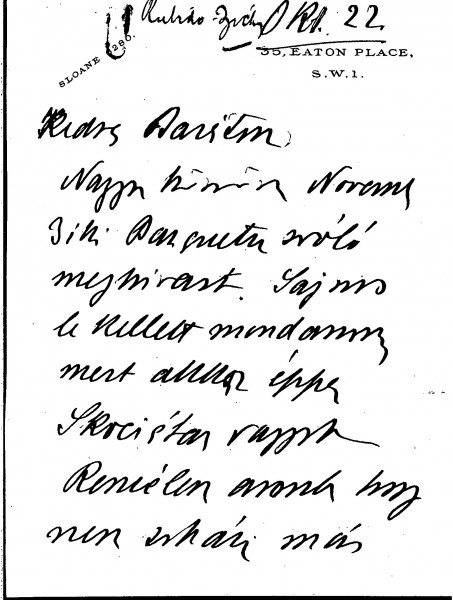 Rubido-Zichy Okt. 22.
SLOANE
35, EATON PLACE,
S.W.1.
Kedves Barátom,
Nagyon November
3iki Banquetre szóló
meghivást. Sajnos
le kellett mondanom
mert akkor éppen
Skociában vagyok
Remélem azonban hogy
nem soká más